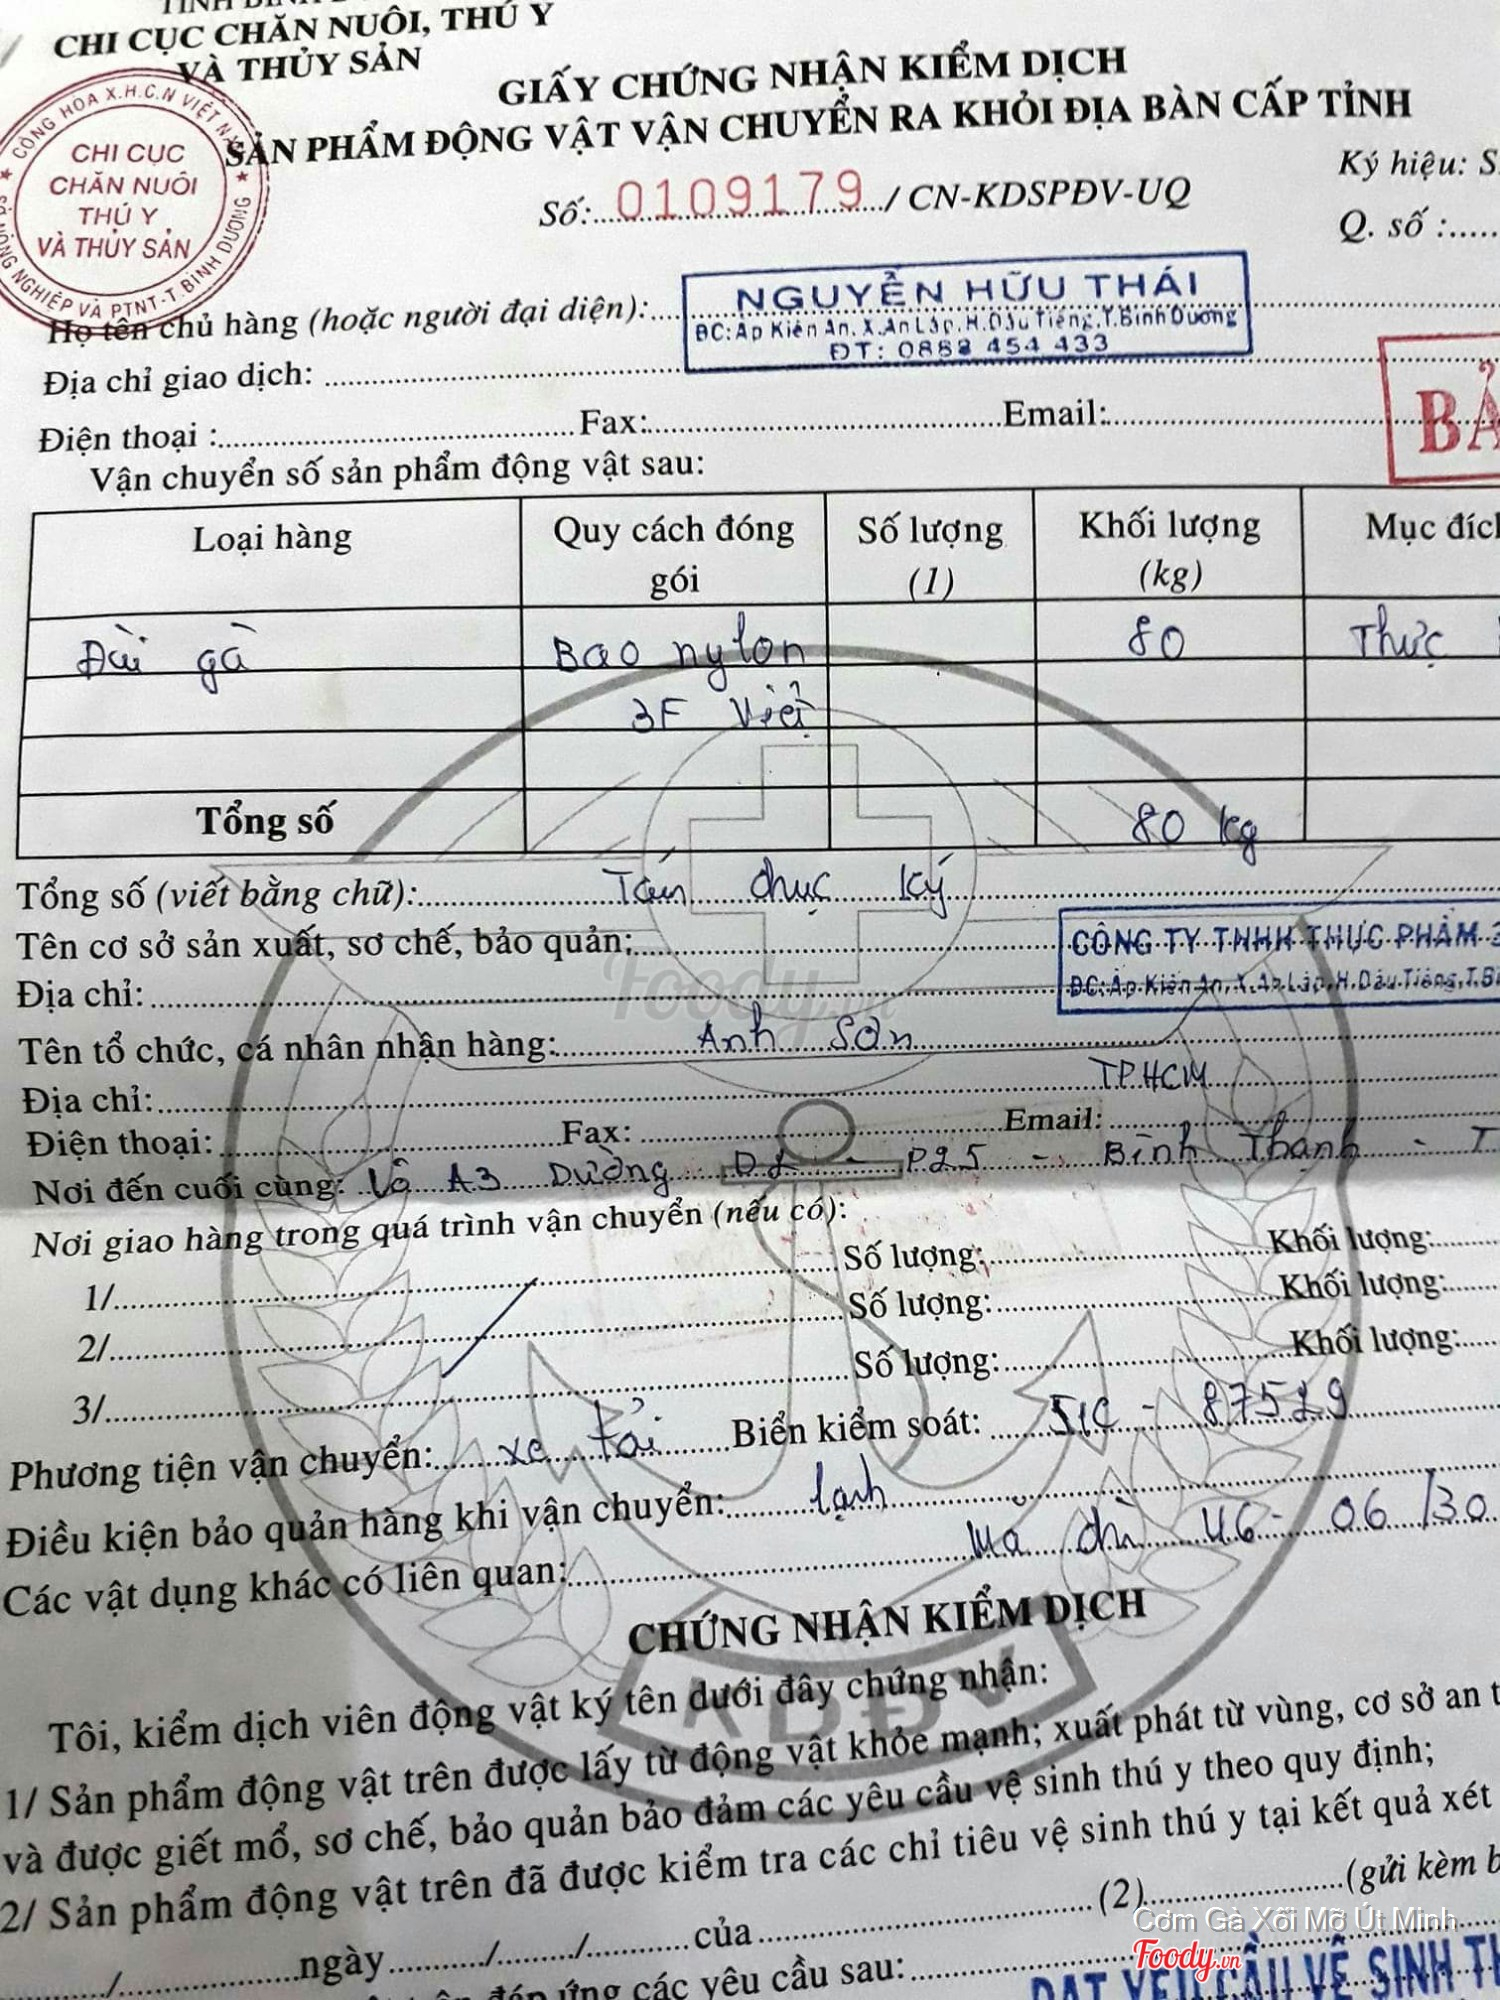 CHI CỤC CHĂN NUÔI, THÚ Y
VÀ THỦY SẢN
GIẤY CHỨNG NHẬN KIỂM DỊCH
SẢN PHẨM ĐỘNG VẬT VẬN CHUYỂN RA KHỎI ĐỊA BÀN CẤP TỈNH
CỘNG HÒA X.H.C.N VIỆT NAM
CHI CỤC
CHĂN NUÔI
THÚ Y
VÀ THỦY SẢN
NÔNG NGHIỆP VÀ PTNT-T.BÌNH DƯƠNG
Số: 0109179 / CN-KDSPĐV-UQ
Ký hiệu:
Q. số :
Họ tên chủ hàng (hoặc người đại diện):
NGUYỄN HỮU THÁI
ĐC: Ấp Kiến An, X.An Lập, H.Dầu Tiếng, T.Bình Dương
ĐT: 0888 454 433
Địa chỉ giao dịch:
Điện thoại : Fax: Email:
Vận chuyển số sản phẩm động vật sau:
Loại hàng Quy cách đóng gói Số lượng (1) Khối lượng (kg)
Đùi gà Bao nylon 80 Thực
3F Việt
Tổng số 80 kg
Tổng số (viết bằng chữ): Tám chục ký
Tên cơ sở sản xuất, sơ chế, bảo quản: CÔNG TY TNHH THỰC PHẨM
Địa chỉ: ĐC: Ấp Kiến An, X.An Lập, H.Dầu Tiếng,
Foody.vn
Tên tổ chức, cá nhân nhận hàng: Anh Sơn
Địa chỉ: TPHCM
Điện thoại: Fax: Email:
Nơi đến cuối cùng: Lô A3 Đường D2 - P25 - Bình Thạnh -
Nơi giao hàng trong quá trình vận chuyển (nếu có):
1/ Số lượng: Khối lượng:
2/ Số lượng: Khối lượng:
3/ Số lượng: Khối lượng:
Phương tiện vận chuyển: xe tải Biển kiểm soát: 51C - 87529
Điều kiện bảo quản hàng khi vận chuyển: lạnh
Các vật dụng khác có liên quan: Mã chì 46- 06 /30
CHỨNG NHẬN KIỂM DỊCH
KDĐV
Tôi, kiểm dịch viên động vật ký tên dưới đây chứng nhận:
1/ Sản phẩm động vật trên được lấy từ động vật khỏe mạnh; xuất phát từ vùng, cơ sở an
và được giết mổ, sơ chế, bảo quản bảo đảm các yêu cầu vệ sinh thú y theo quy định;
2/ Sản phẩm động vật trên đã được kiểm tra các chỉ tiêu vệ sinh thú y tại kết quả xét
/ ngày / / của (2) (gửi kèm
đáp ứng các yêu cầu sau:
ĐẠT YÊU CẦU VỆ SINH
Cơm Gà Xối Mỡ Út Minh
Foody.vn